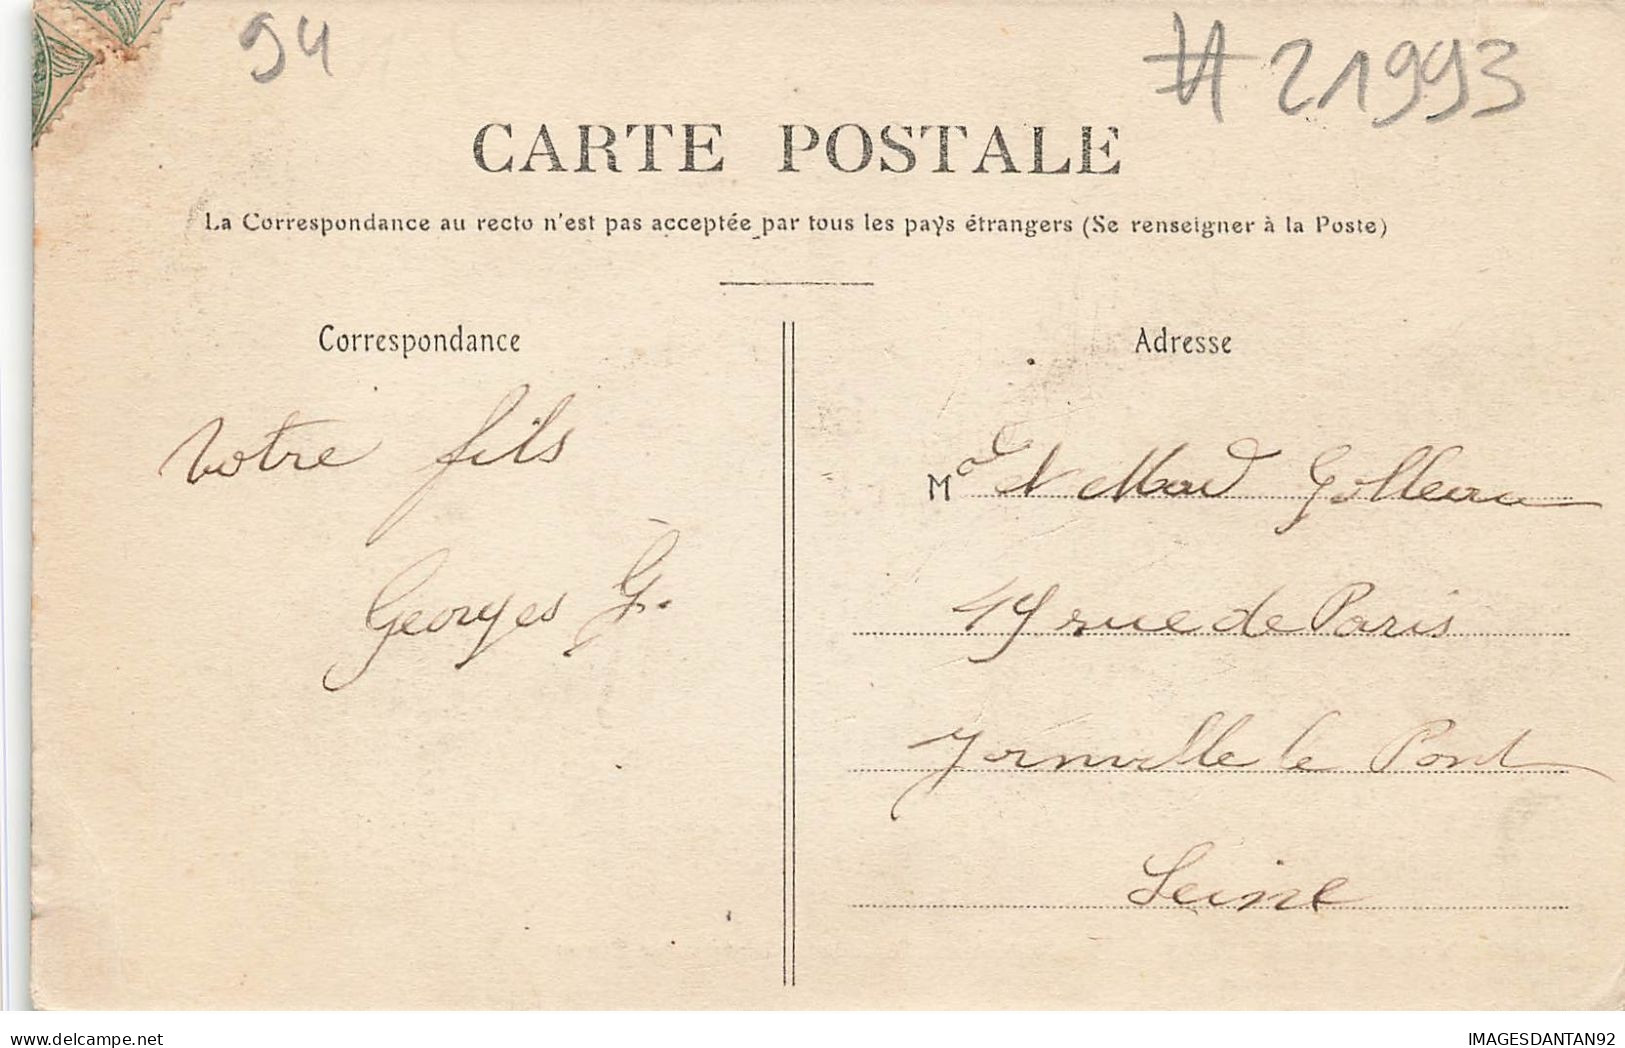 94
# 21993
CARTE POSTALE
La Correspondance au recto n'est pas acceptée par tous les pays étrangers (Se renseigner à la Poste)
Correspondance
votre fils
Georges G.
Adresse
M
49 rue de Paris
Joinville le Pont
Seine
delcampe.net
IMAGESDANTAN92